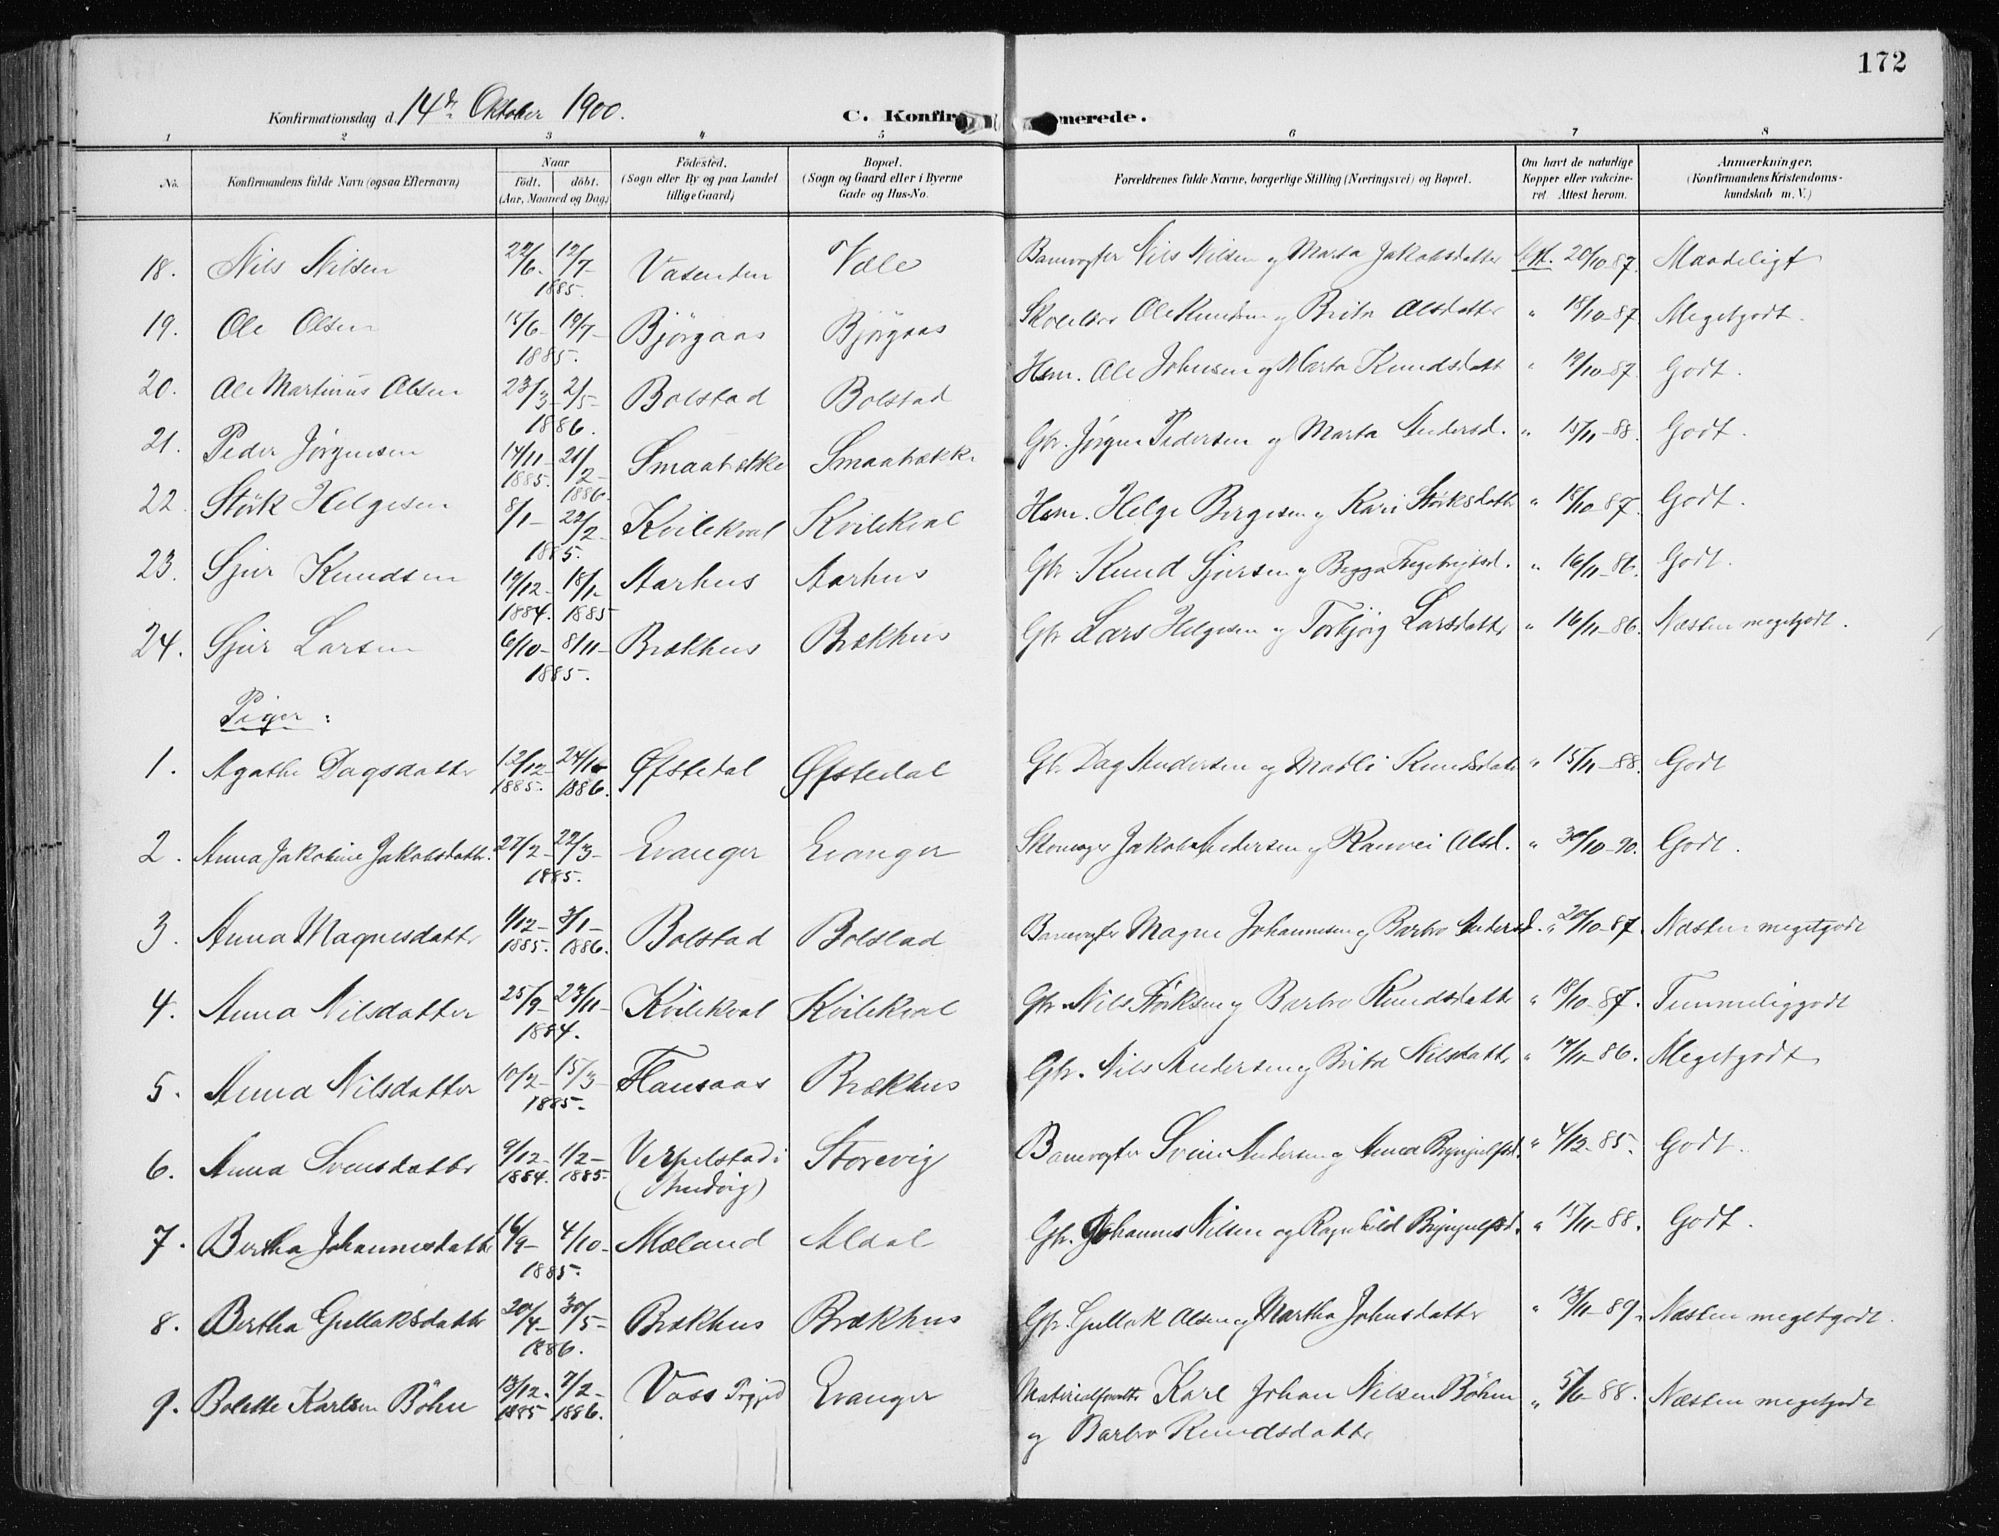 172
Konfirmationsdag d. 14de Oktober 1900.
C. Konfir merede.
1 2 3 4 5 6 7 8
No. Konfirmandens fulde Navn (ogsaa Efternavn) Naar födt. döbt. (Aar, Maaned og Dag) Födested. (Sogn eller By og paa Landet tillige Gaard) Bopæl. (Sogn og Gaard eller i Byerne Gade og Hus-No. Forældrenes fulde Navne, borgerlige Stilling (Næringsvei) og Bopæl. Om havt de naturlige Kopper eller vakcineret. Attest herom. Anmærkninger. (Konfirmandens Kristendomskundskab m. V.)
18. Nils Nilsen 22/6- 12/7- 1885. Vasenden Væle Banevogter Nils Nilsen og Marta Jakobsdatter Att. 20/10-87. Maadeligt
19. Ole Olsen 15/6- 19/7- 1885. Bjørgaas Bjørgaas Ole Knudsen og Brita Olsdatter " 18/10-87. Megetgodt.
20. Ole Martinus Olsen 23/3- 2/5- 1886. Bolstad Bolstad Hsm. Ole Johnsen og Marta Knudsdatt " 19/10-87. Godt.
21. Peder Jørgensen 14/11- 1885. 21/2- 1886. Smaabrække Smaabrække Gbr. Jørgen Pedersen og Marta Andersd. " 15/11-88. Godt.
22. Størk Helgesen 8/1- 22/2- 1885. Kvilekval Kvilekval Hsm. Helge Bergesen og Kari Størksdatter " 18/10-87. Godt.
23. Sjur Knudsen 19/12- 1884. 18/1- 1885 Aarhus Aarhus Gbr. Knud Sjursen og " 16/11-86. Godt.
24. Sjur Larsen 6/10- 8/11- 1885. Brækhus Brækhus Gbr Lars Helgesen og Torbjørg Larsdatter " 16/11-86. Næsten megetgodt.
Piger:
1. Agathe Dagsdatter 12/12- 1885. 24/1- 1886. Øfstedal Øfstedal Gbr. Dag Andersen og Madli Knudsdatter " 15/11-88. Godt
2. Anna Jakobine Jakobsdatter. 23/2- 22/3- 1885. Evanger Evanger Skomager Jakob Andersen og Ranvei Olsd. " 30/10-90. Godt.
3. Anna Magnesdatter 1/12- 1885. 3/1- 1886. Bolstad Bolstad Banevogter Magne Johannesen og Barbro Andersd. " 20/10-87. Næsten megetgodt
4. Anna Nilsdatter 25/9- 23/11- 1884. Kvilekval Kvilekval Gbr. Nils Størksen og Barbro Knudsdatter " 18/10-87. Temmeliggodt
5. Anna Nilsdatter 10/2- 15/3- 1885. Flausaas Brækhus Gbr. Nils Andersen og Brita Nilsdatter " 17/11-86. Megetgodt
6. Anna Svensdatter 9/12- 1884. 1/2- 1885- i Storevig Banevogter Svein Andersen og Anna Brynjulfsd. " 4/12-85. Godt.
7. Bertha Johannesdatter 16/9- 4/10- 1885. Mæland Aldal Gbr. Johannes Nilsen og Ragnhild Brynjulfsd. " 15/11-88. Godt.
8. Bertha Gullaksdatter 20/4- 30/5- 1886. Brækhus Brækhus Gbr. Gullak Olsen og Martha Johnsdatter " 13/11-89. Næsten megetgodt.
9. Bolette Karlsen Böhn 13/12. 1885 7/2- 1886. Voss Evanger Karl Johan Nilsen Böhn " -88. Næsten megetgodt
og Barbro Knudsdatter